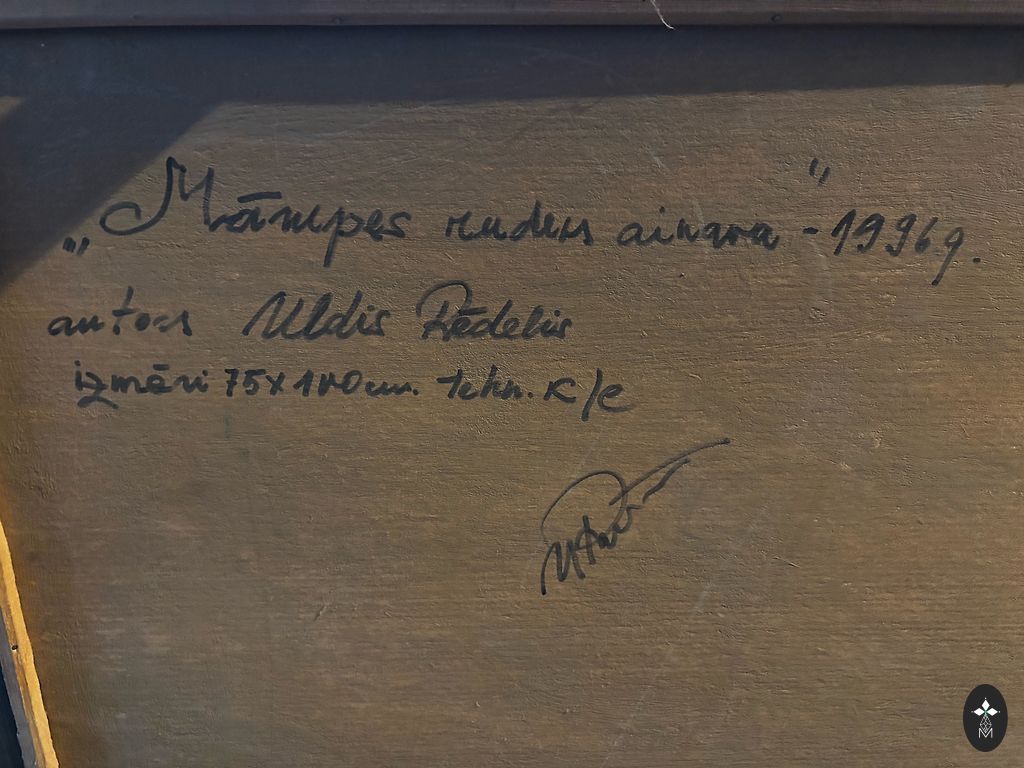 „Mārupes rudens ainava“ - 1996g.
autors Uldis Rēdelis
izmēri 75x100cm. tehn. K/e
M